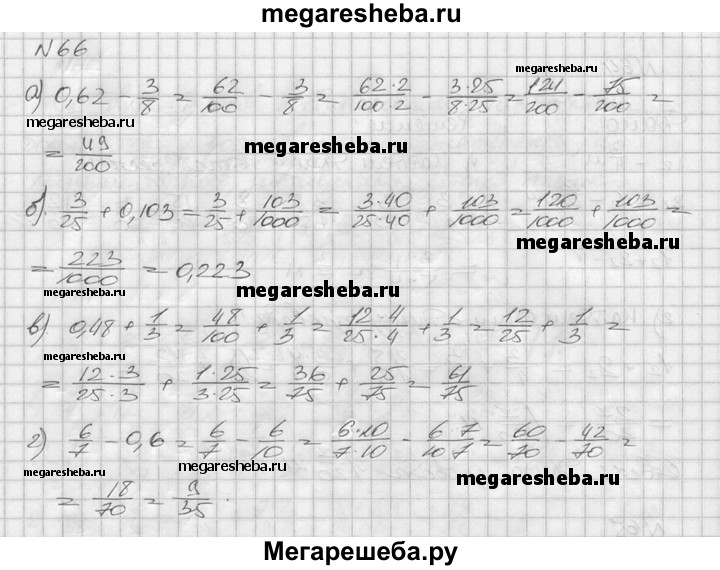 megaresheba.ru
N 66
megaresheba.ru
а) 0,62 - 3/8 = 62/100 - 3/8 = 62·2/100·2 - 3·25/8·25 = 124/200 - 75/200 =
megaresheba.ru
= 49/200
megaresheba.ru
б). 3/25 + 0,103 = 3/25 + 103/1000 = 3·40/25·40 + 103/1000 = 120/1000 + 103/1000 =
megaresheba.ru
= 223/1000 = 0,223
megaresheba.ru
megaresheba.ru
в). 0,48 + 1/3 = 48/100 + 1/3 = 12·4/25·4 + 1/3 = 12/25 + 1/3 =
megaresheba.ru
= 12·3/25·3 + 1·25/3·25 = 36/75 + 25/75 = 61/75
г) 6/7 - 0,6 = 6/7 - 6/10 = 6·10/7·10 - 6·7/10·7 = 60/70 - 42/70 =
megaresheba.ru
megaresheba.ru
megaresheba.ru
= 18/70 = 9/35.
Мегарешеба.ру